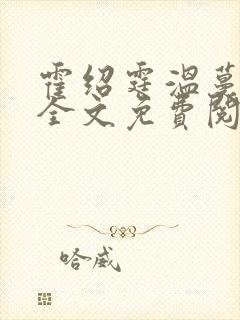 霍绍霆温蔓
全文免费阅
哈威